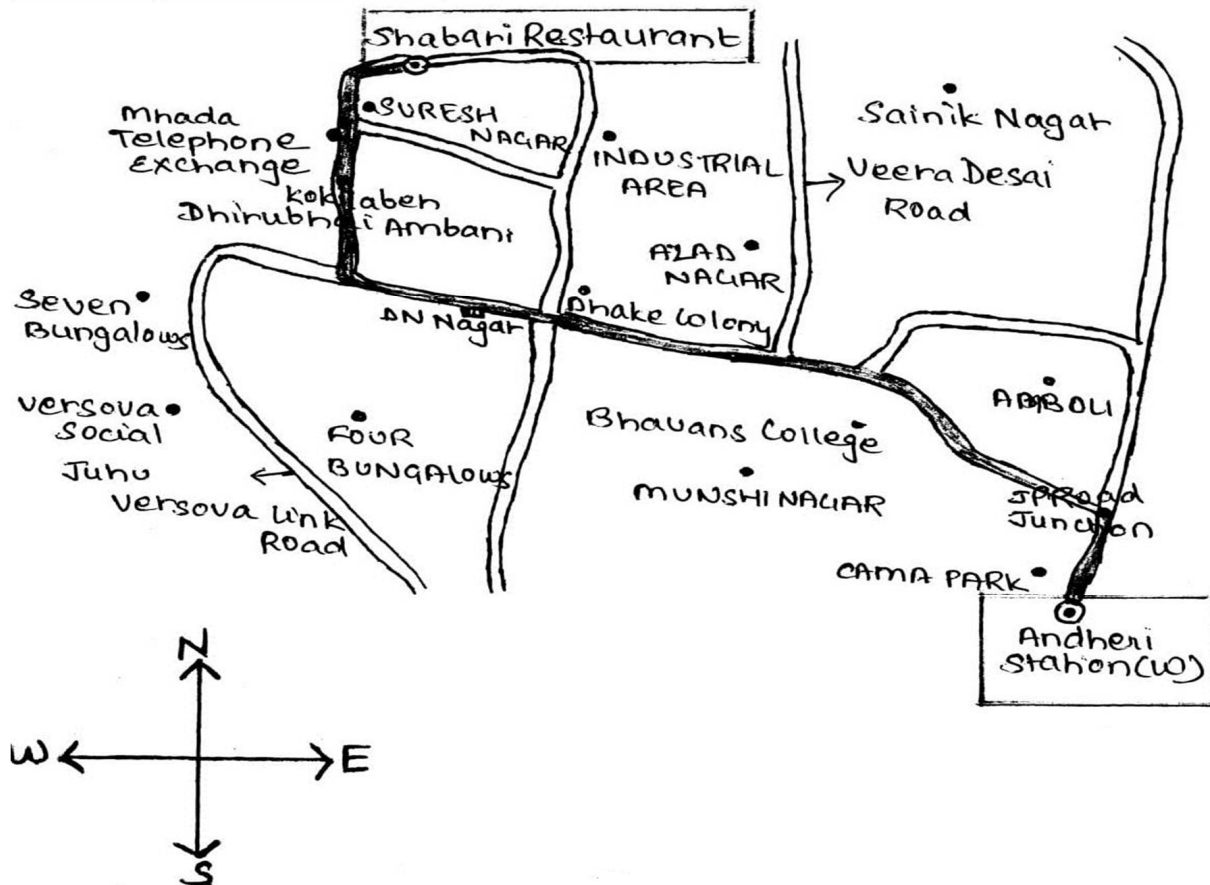 Shabari Restaurant
SURESH
NAGAR
Mhada
Telephone
Exchange
INDUSTRIAL
AREA
Sainik Nagar
Veera Desai
Road
Kokilaben
Dhirubhai Ambani
AZAD
NAGAR
Seven
Bungalows
DN Nagar
Dhake Colony
AMBOLI
Versova
Social
FOUR
BUNGALOWS
Bhavans College
Juhu
Versova Link
Road
MUNSHI NAGAR
JP Road
Junction
CAMA PARK
Andheri
Station (W)
N
W
E
S